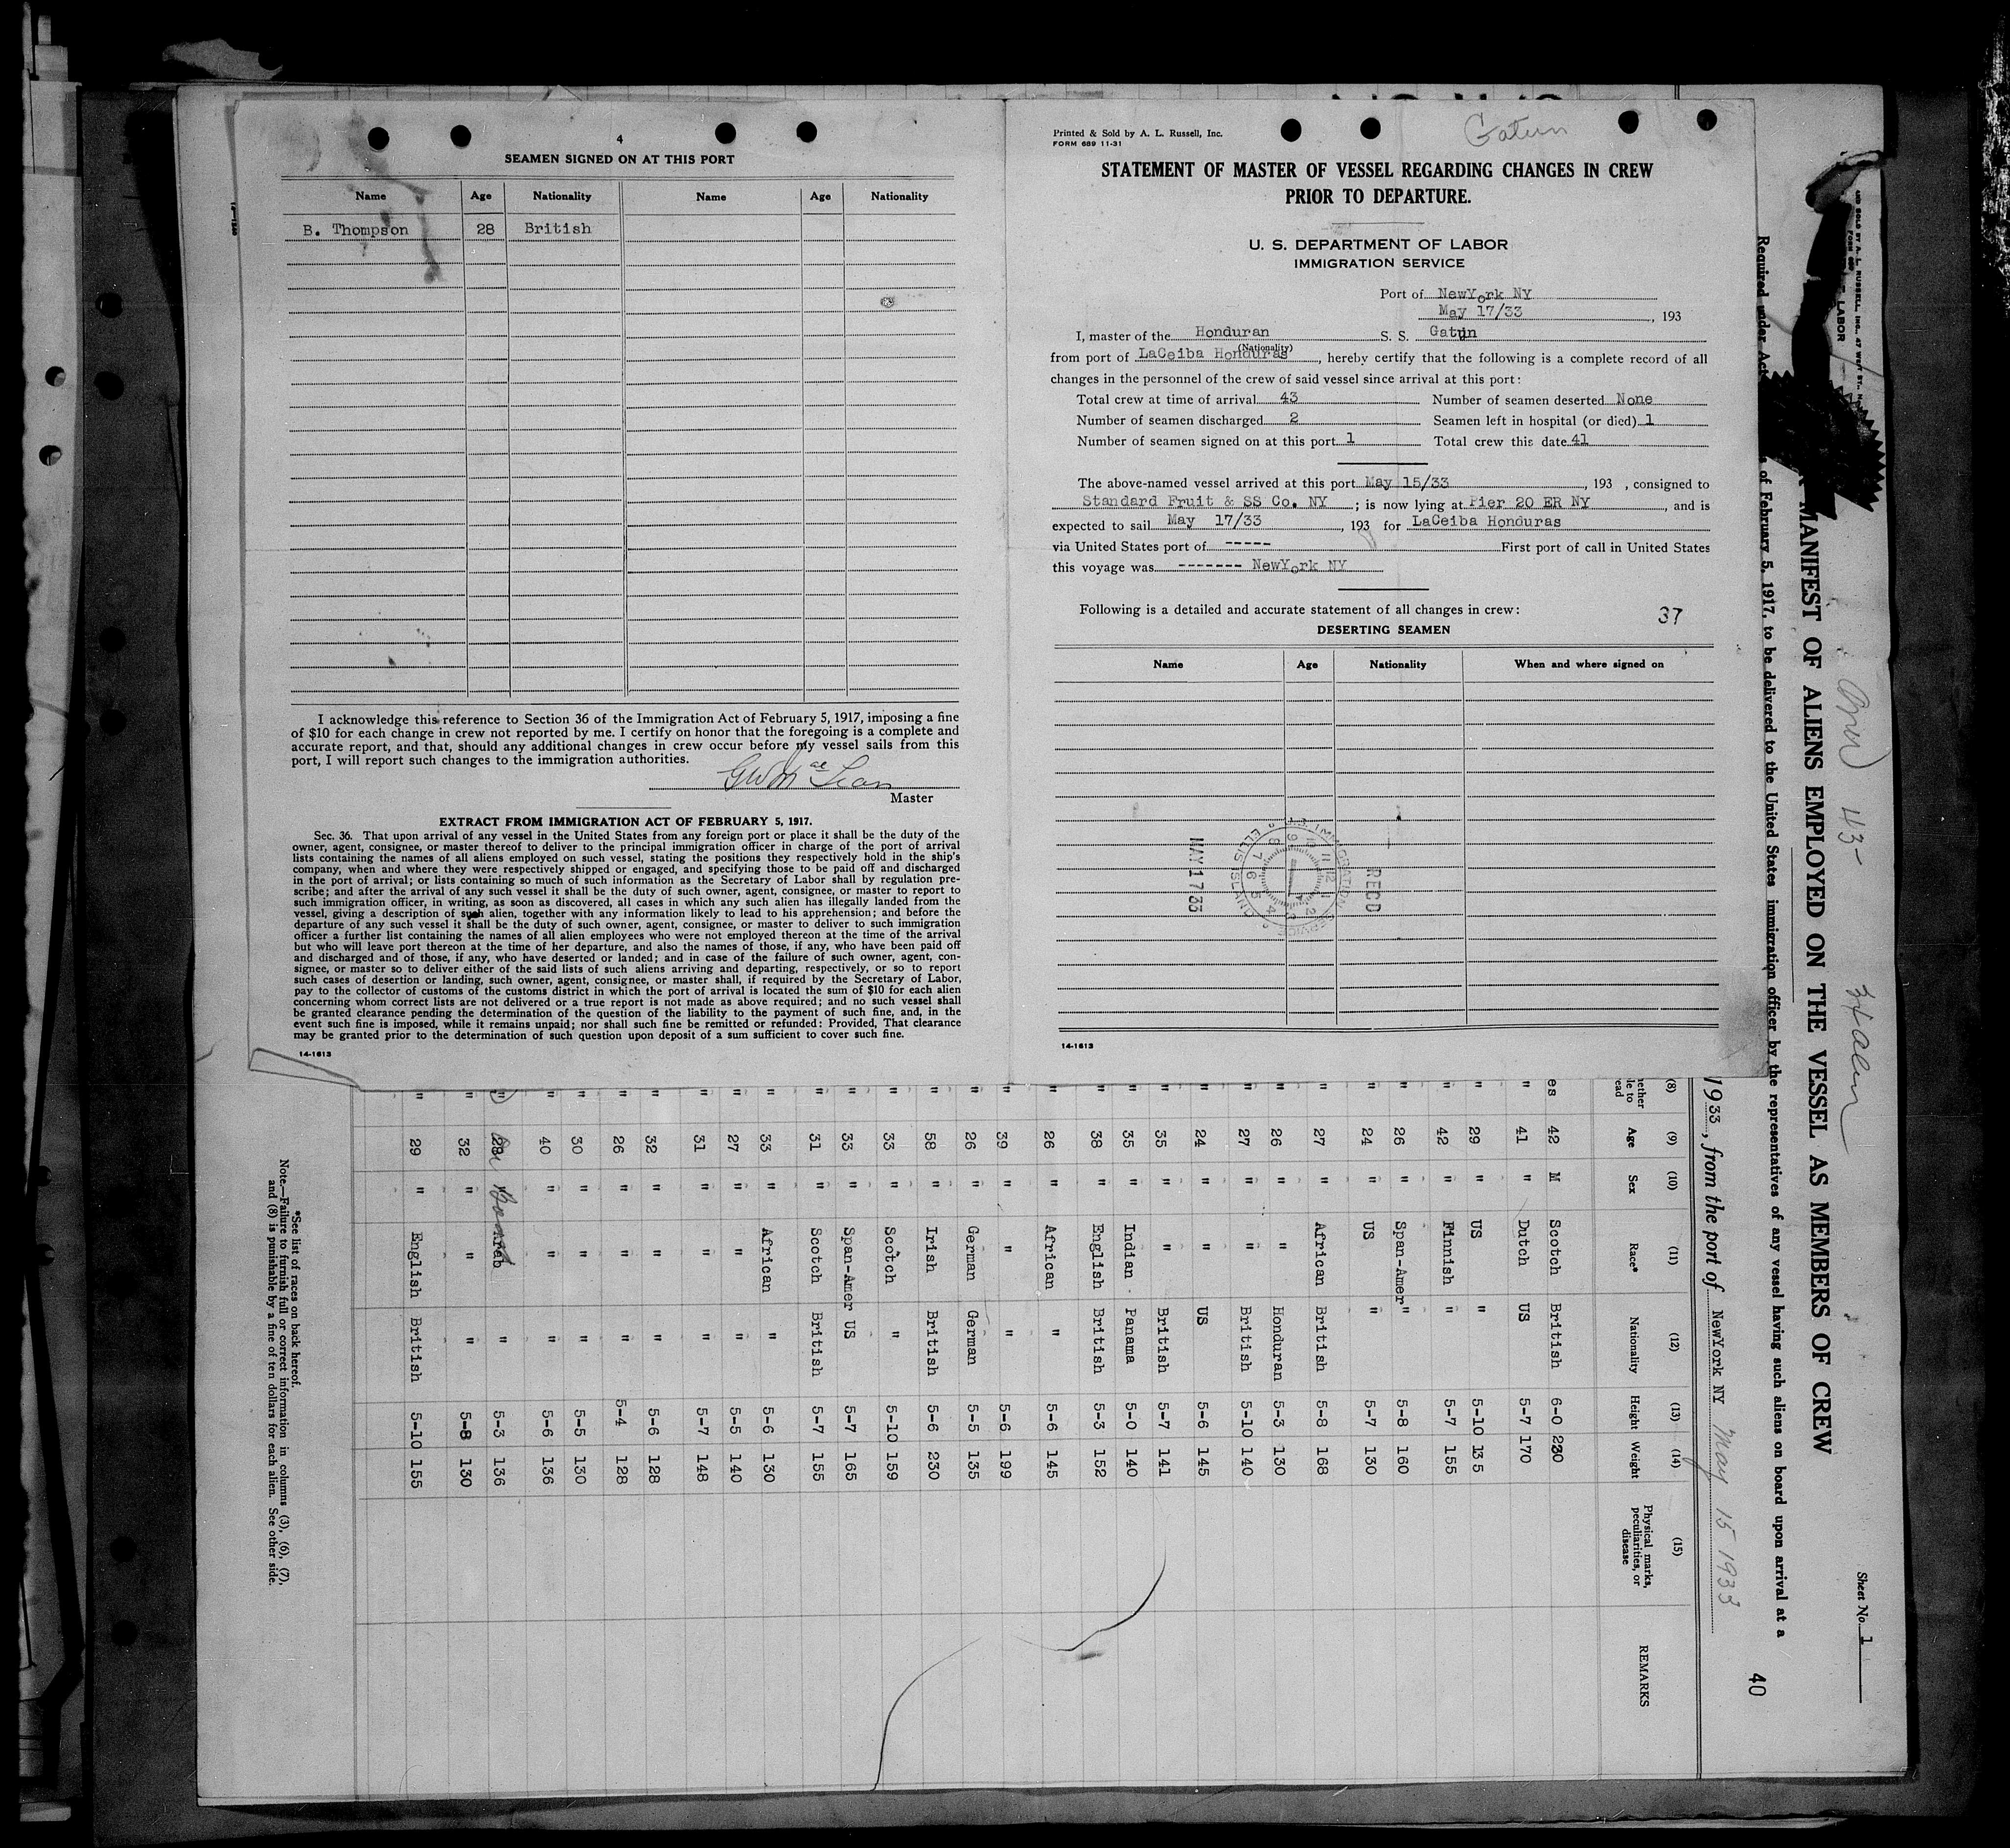 4
SEAMEN SIGNED ON AT THIS PORT
Name Age Nationality Name Age Nationality
B. Thompson 28 British
I acknowledge this reference to Section 36 of the Immigration Act of February 5, 1917, imposing a fine
of $10 for each change in crew not reported by me. I certify on honor that the foregoing is a complete and
accurate report, and that, should any additional changes in crew occur before my vessel sails from this
port, I will report such changes to the immigration authorities.
Master
EXTRACT FROM IMMIGRATION ACT OF FEBRUARY 5, 1917.
Sec. 36. That upon arrival of any vessel in the United States from any foreign port or place it shall be the duty of the
owner, agent, consignee, or master thereof to deliver to the principal immigration officer in charge of the port of arrival
lists containing the names of all aliens employed on such vessel, stating the positions they respectively hold in the ship's
company, when and where they were respectively shipped or engaged, and specifying those to be paid off and discharged
in the port of arrival; or lists containing so much of such information as the Secretary of Labor shall by regulation pre-
scribe; and after the arrival of any such vessel it shall be the duty of such owner, agent, consignee, or master to report to
such immigration officer, in writing, as soon as discovered, all cases in which any such alien has illegally landed from the
vessel, giving a description of such alien, together with any information likely to lead to his apprehension; and before the
departure of any such vessel it shall be the duty of such owner, agent, consignee, or master to deliver to such immigration
officer a further list containing the names of all alien employees who were not employed thereon at the time of the arrival
but who will leave port thereon at the time of her departure, and also the names of those, if any, who have been paid off
and discharged and of those, if any, who have deserted or landed; and in case of the failure of such owner, agent, con-
signee, or master so to deliver either of the said lists of such aliens arriving and departing, respectively, or so to report
such cases of desertion or landing, such owner, agent, consignee, or master shall, if required by the Secretary of Labor,
pay to the collector of customs of the customs district in which the port of arrival is located the sum of $10 for each alien
concerning whom correct lists are not delivered or a true report is not made as above required; and no such vessel shall
be granted clearance pending the determination of the question of the liability to the payment of such fine, and, in the
event such fine is imposed, while it remains unpaid; nor shall such fine be remitted or refunded: Provided, That clearance
may be granted prior to the determination of such question upon deposit of a sum sufficient to cover such fine.
14-1613
Printed & Sold by A. L. Russell, Inc.
FORM 689 11-31
Gatun
STATEMENT OF MASTER OF VESSEL REGARDING CHANGES IN CREW
PRIOR TO DEPARTURE.
U. S. DEPARTMENT OF LABOR
IMMIGRATION SERVICE
Port of NewYork NY
May 17/33, 193
I, master of the Honduran S. S. Gatun
(Nationality)
from port of LaCeiba Honduras, hereby certify that the following is a complete record of all
changes in the personnel of the crew of said vessel since arrival at this port:
Total crew at time of arrival 43 Number of seamen deserted None
Number of seamen discharged 2 Seamen left in hospital (or died) 1
Number of seamen signed on at this port 1 Total crew this date 41
The above-named vessel arrived at this port May 15/33, 193 , consigned to
Standard Fruit & SS Co. NY ; is now lying at Pier 20 ER NY, and is
expected to sail May 17/33, 193 for LaCeiba Honduras
via United States port of ----- First port of call in United States
this voyage was ------- NewYork NY
Following is a detailed and accurate statement of all changes in crew:
37
DESERTING SEAMEN
Name Age Nationality When and where signed on
MAY 17 33
RECD
14-1613
Sheet No. 1
40
MANIFEST OF ALIENS EMPLOYED ON THE VESSEL AS MEMBERS OF CREW
Required under Act of February 5, 1917, to be delivered to the United States immigration officer by the representatives of any vessel having such aliens on board upon arrival at a
1933, from the port of NewYork NY May 15 1933
(8) (9) (10) (11) (12) (13) (14) (15)
Age Sex Race* Nationality Height Weight Physical marks, peculiarities, or disease REMARKS
es 42 M Scotch British 6-0 230
" 41 " Dutch US 5-7 170
" 29 " US " 5-10 135
" 42 " Finnish " 5-7 155
" 26 " Span-Amer " 5-8 160
" 24 " US " 5-7 130
" 27 " African British 5-8 168
" 26 " " Honduran 5-3 130
" 27 " " British 5-10 140
" 24 " " US 5-6 145
" 35 " " British 5-7 141
" 35 " Indian Panama 5-0 140
" 38 " English British 5-3 152
" 26 " African " 5-6 145
" 39 " " " 5-6 199
" 26 " German German 5-5 135
" 58 " Irish British 5-6 230
" 33 " Scotch " 5-10 159
" 33 " Span-Amer US 5-7 165
" 31 " Scotch British 5-7 155
" 33 " African " 5-6 130
" 27 " " " 5-5 140
" 31 " " " 5-7 148
" 32 " " " 5-6 128
" 26 " " " 5-4 128
" 30 " " " 5-5 130
" 40 " " " 5-6 136
" 28 " Arab " 5-3 136
" 32 " " " 5-8 130
" 29 " English British 5-10 155
*See list of races on back hereof.
Note.—Failure to furnish full or correct information in columns (3), (6), (7),
and (8) is punishable by a fine of ten dollars for each alien. See other side.